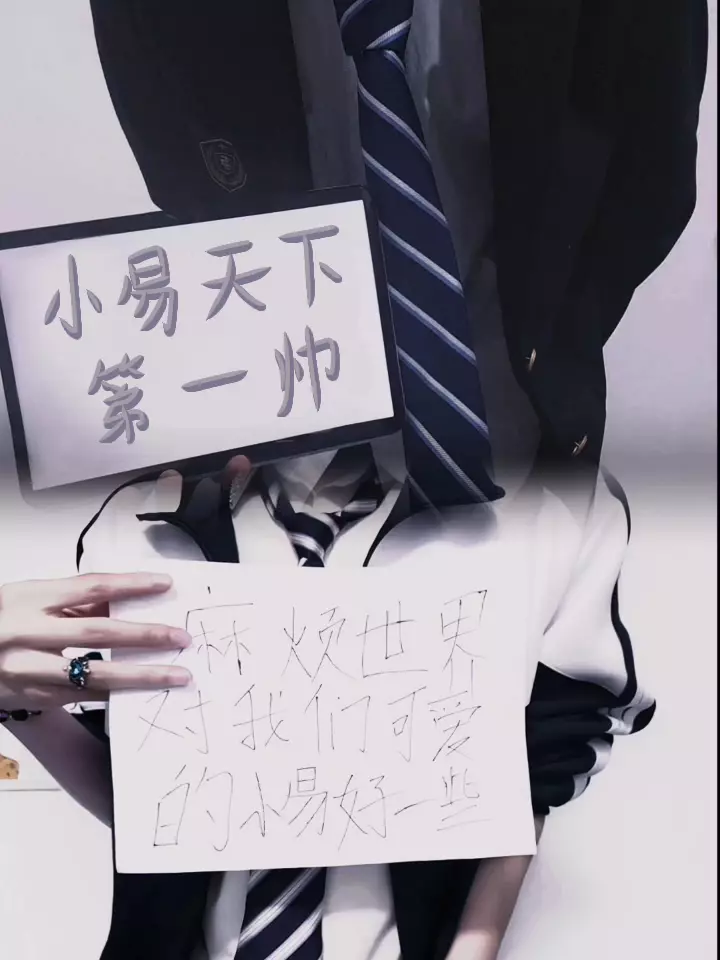 小易天下
第一帅
麻烦世界
对我们可爱
的小易好一些